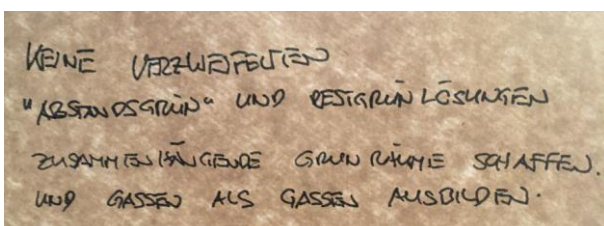 KEINE VERZWEIFELTEN
"ABSTANDSGRÜN" UND RESTGRÜN LÖSUNGEN
ZUSAMMENHÄNGENDE GRÜN RÄUME SCHAFFEN.
UND GASSEN ALS GASSEN AUSBILDEN.